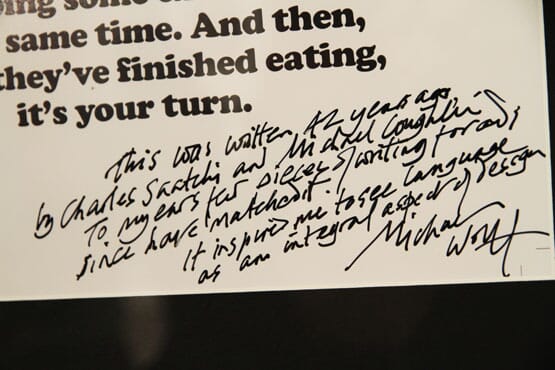 ing some
same time. And then,
they've finished eating,
it's your turn.
This was written 42 years ago
by Charles Saatchi and Michael Coughlin
To my ears few pieces of writing for ads
since have matched it.
It inspired me to see language
as an integral aspect of design
Michael
Wolff